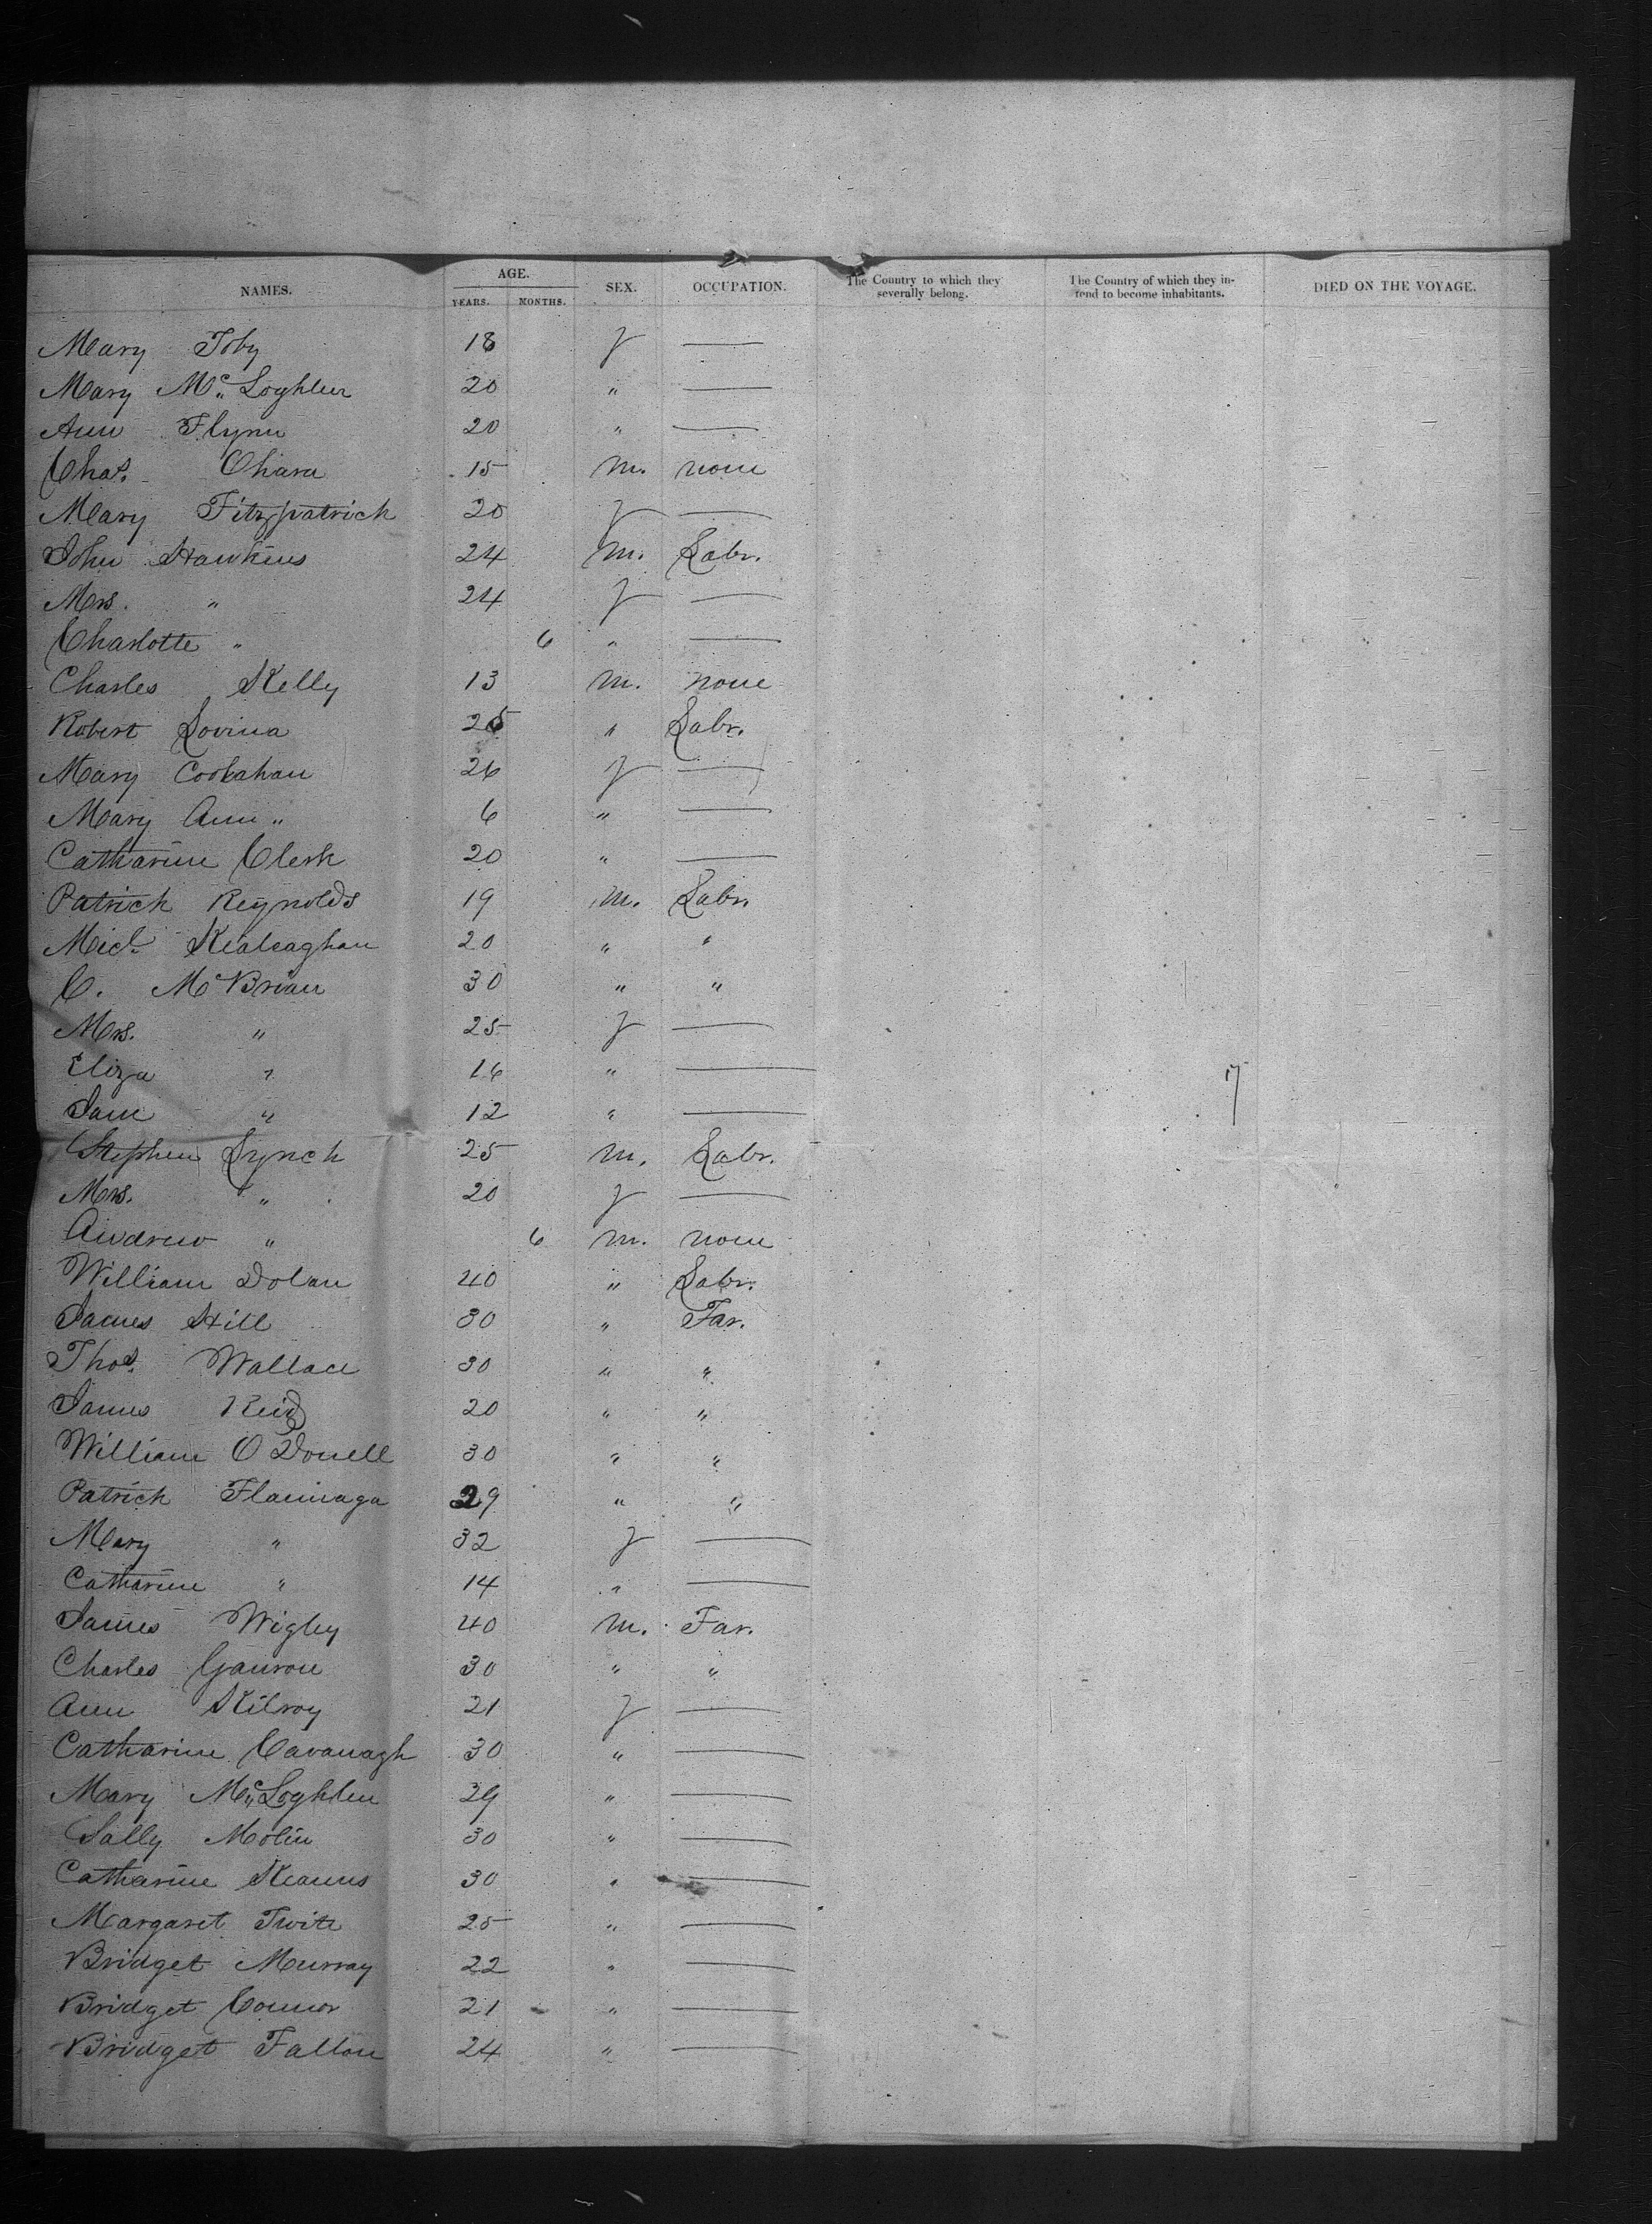 NAMES. AGE. YEARS. MONTHS. SEX. OCCUPATION. The Country to which they severally belong. The Country of which they intend to become inhabitants. DIED ON THE VOYAGE.
Mary Toby 18 f —
Mary Mc Loghlen 20 " —
Ann Flynn 20 " —
Chas. Ohara 15 m. none
Mary Fitzpatrick 20 f —
John Hawkins 24 m. Labr.
Mrs. " 24 f —
Charlotte " 6 " —
Charles Kelly 13 m. none
Robert Lovina 25 " Labr.
Mary Coolahan 26 f —
Mary Ann " 6 " —
Catharine Clerk 20 " —
Patrick Reynolds 19 m. Labr.
Micl. Kealeaghan 20 " "
C. McBrian 30 " "
Mrs. " 25 f —
Eliza " 16 " —
Jane " 12 " —
Stephen Lynch 25 m. Labr.
Mrs. " 20 f —
Andrew " 6 m. none
William Dolan 40 " Labr.
James Hill 30 " Far.
Thos. Wallace 30 " "
James Reid 20 " "
William O Donell 30 " "
Patrick Flannaga 29 " "
Mary " 32 f —
Catharine " 14 " —
James Wigley 40 m. Far.
Charles Gauron 30 " "
Ann Kilroy 21 f —
Catharine Cavanagh 30 " —
Mary McLoghlen 29 " —
Sally Molin 30 " —
Catharine Kearns 30 " —
Margaret Twite 25 " —
Bridget Murray 22 " —
Bridget Connor 21 " —
Bridget Fallon 24 " —